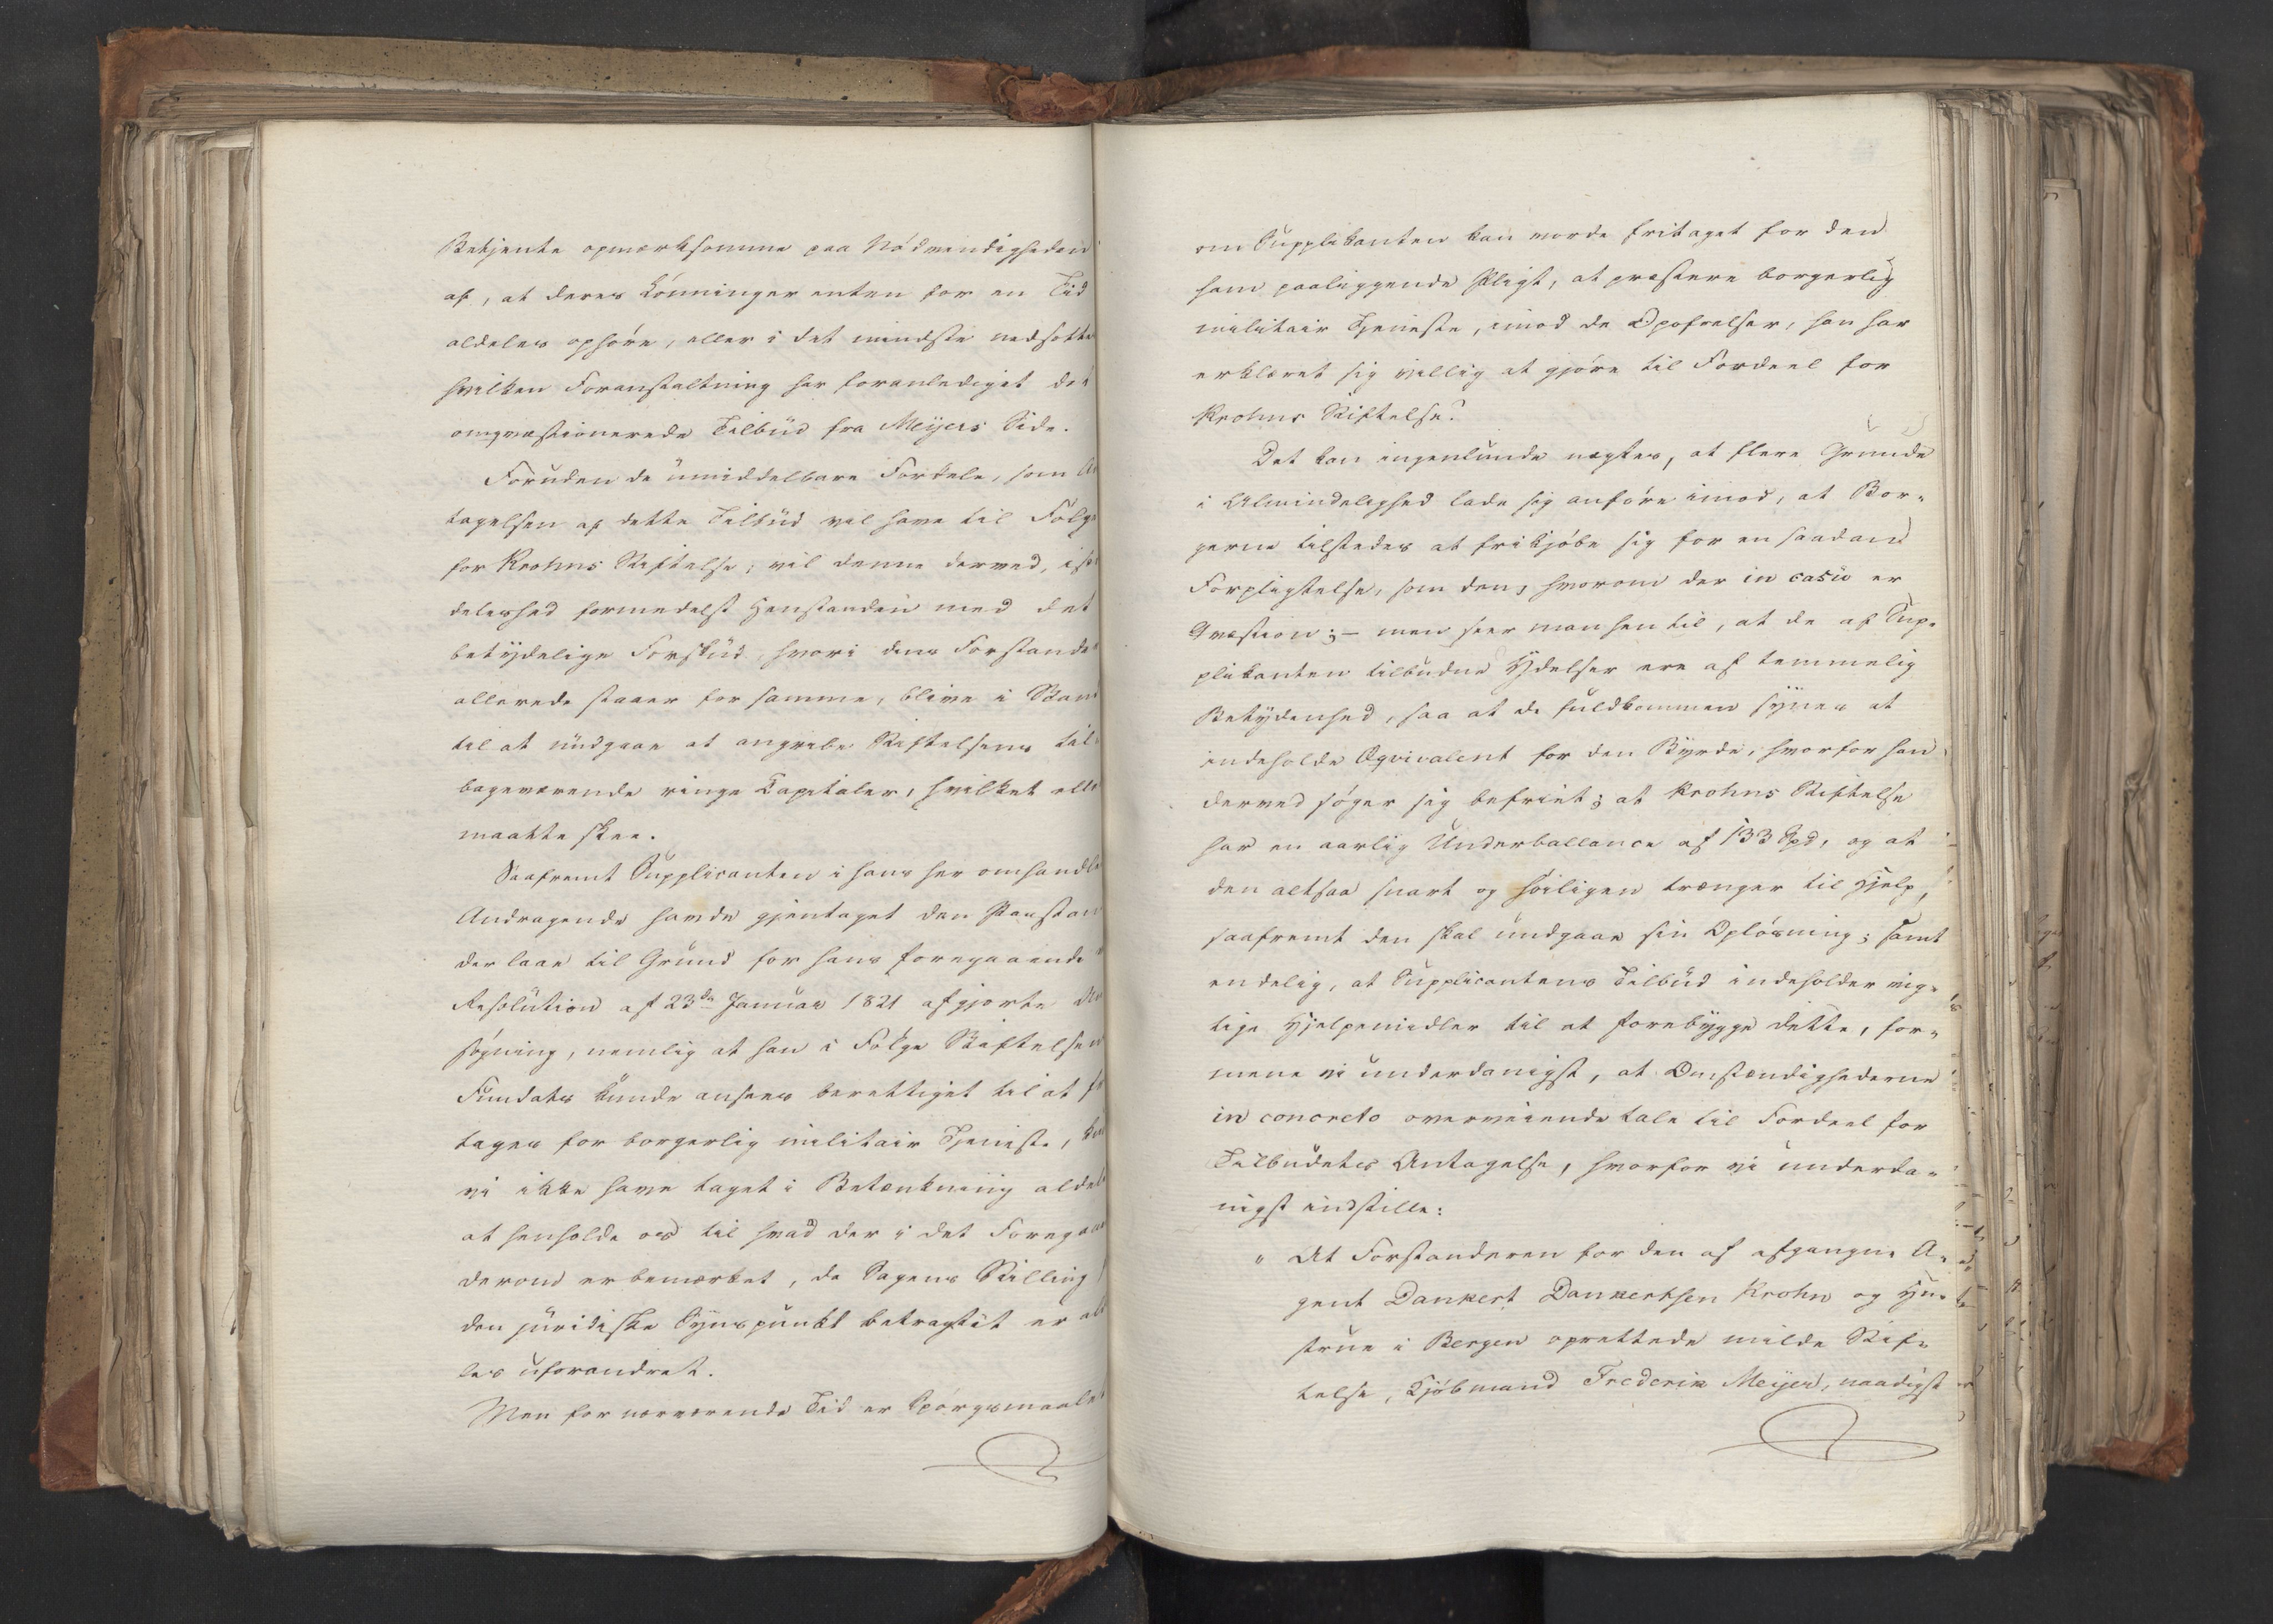 Betjente opmærksomme paa Nødvendigheden
af, at deres Lønninger enten for en Tid
aldeles ophøre, eller i det mindste nedsættes
hvilken Foranstaltning har foranlediget det
omqvæstionerede Tilbud fra Meyers Side.
Foruden de umiddelbare Fordele, som
tagelsen af dette Tilbud vil have til Følge
for Krohns Stiftelse, vil denne derved,
deleshed formedelst Henstanden med det
betydelige Forskud, hvori dens Forstander
allerede staaer for samme, blive i Stand
til at undgaae at angribe Stiftelsens til-
bageværende ringe Capitaler, hvilket ellers
maatte skee.
Saafremt Supplicanten i hans her omhandlede
Andragende havde gjentaget den Paastand
der laae til Grund for hans foregaaende
Resolution af 23de Januar 1821 afgjorte An
søgning, nemlig at han i Følge Stiftelsens
Fundats kunde ansees berettiget til at fri
tages for borgerlig militair Tjeneste,
vi ikke have taget i Betænkning aldeles
at henholde os til hvad der i det Foregaaende
derom er bemærket, da Sagens Stilling
den juridiske Synspunkt betragtet er alde
les uforandret.
Men for nærværende Tid er Spørgsmaalet
om Supplikanten kan vorde fritaget for den
ham paaliggende Pligt, at præstere borgerlig
militair Tjeneste, imod de Opofrelser, han har
erklæret sig villig at gjøre til Fordeel for
Krohns Stiftelse?
Det kan ingenlunde nægtes, at flere Grunde
i Almindelighed lade sig anføre imod, at Bor-
gerne tilstedes at frikjøbe sig for en saadan
Forpligtelse, som den, hvorom der in casu er
Qvæstion; – men seer man hen til, at de af Sup-
plikanten tilbudne Ydelser ere af temmelig
Betydenhed, saa at de fuldkommen synes at
indeholde Æqvivalent for den Byrde, hvorfor han
derved søger sig befriet; at Krohns Stiftelse
har en aarlig Underballance af 133 Spd, og at
den altsaa snart og høiligen trænger til Hjelp,
saafremt den skal undgaae sin Opløsning; samt
endelig, at Supplicantens Tilbud indeholder vig-
tige Hjelpemidler til at forebygge dette, for-
mene vi underdanigst, at Omstændighederne
in concreto overveiende tale til Fordeel for
Tilbudets Antagelse, hvorfor vi underda-
nigst indstille:
" At Forstanderen for den af afgangne A-
gent Dankert Dankertsen Krohn og Hu-
strue i Bergen oprettede milde Stif-
telse, Kjøbmand Frederik Meyer, naadigst